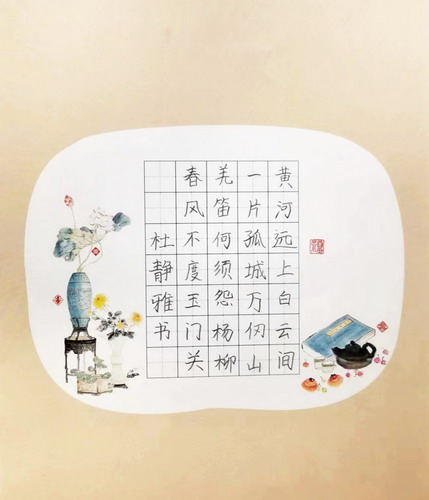 黄河远上白云间
一片孤城万仞山
羌笛何须怨杨柳
春风不度玉门关
杜静雅书